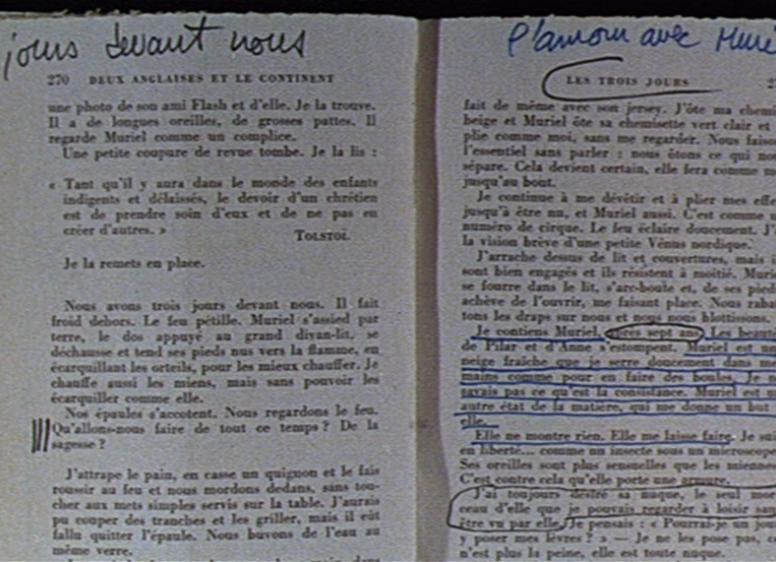 jours devant nous
270 DEUX ANGLAISES ET LE CONTINENT
une photo de son ami Flash et d'elle. Je la trouve.
Il a de longues oreilles, de grosses pattes. Il
regarde Muriel comme un complice.
Une petite coupure de revue tombe. Je la lis :
« Tant qu'il y aura dans le monde des enfants
indigents et délaissés, le devoir d'un chrétien
est de prendre soin d'eux et de ne pas en
créer d'autres. »
TOLSTOÏ.
Je la remets en place.
Nous avons trois jours devant nous. Il fait
froid dehors. Le feu pétille. Muriel s'assied par
terre, le dos appuyé au grand divan-lit, se
déchausse et tend ses pieds nus vers la flamme, en
écarquillant les orteils, pour les mieux chauffer. Je
chauffe aussi les miens, mais sans pouvoir les
écarquiller comme elle.
Nos épaules s'accotent. Nous regardons le feu.
Qu'allons-nous faire de tout ce temps ? De la
sagesse ?
J'attrape le pain, en casse un quignon et le fais
roussir au feu et nous mordons dedans, sans tou-
cher aux mets simples servis sur la table. J'aurais
pu couper des tranches et les griller, mais il eût
fallu quitter l'épaule. Nous buvons de l'eau au
même verre.
l'amour avec Muri
LES TROIS JOURS 2
fait de même avec son jersey. J'ôte ma chem
beige et Muriel ôte sa chemisette vert clair et
plie comme moi, sans me regarder. Nous faiso
l'essentiel sans parler : nous ôtons ce qui no
sépare. Cela devient certain, elle fera comme m
jusqu'au bout.
Je continue à me dévêtir et à plier mes effe
jusqu'à être nu, et Muriel aussi. C'est comme
numéro de cirque. Le feu éclaire doucement. J'
la vision brève d'une petite Vénus nordique.
J'arrache dessus de lit et couvertures, mais i
sont bien engagés et ils résistent à moitié. Muri
se fourre dans le lit, s'arc-boute et, de ses pied
achève de l'ouvrir, me faisant place. Nous raba
tons les draps sur nous et nous nous blottissons.
Je contiens Muriel, après sept ans. Les beaut
de Pilar et d'Anne s'estompent. Muriel est un
neige fraîche que je serre doucement dans me
mains comme pour en faire des boules. Je n
savais pas ce qu'est la consistance. Muriel est u
autre état de la matière, qui me donne un but
elle.
Elle ne montre rien. Elle me laisse faire. Je su
en liberté... comme un insecte sous un microscope
Ses oreilles sont plus sensuelles que les mienne
C'est contre cela qu'elle porte une armure.
J'ai toujours désiré sa nuque, le seul mor
ceau d'elle que je pouvais regarder à loisir san
être vu par elle. Je pensais : « Pourrai-je un jou
y poser mes lèvres ? » — Je ne les pose pas, c
n'est plus la peine, elle est toute nuque.